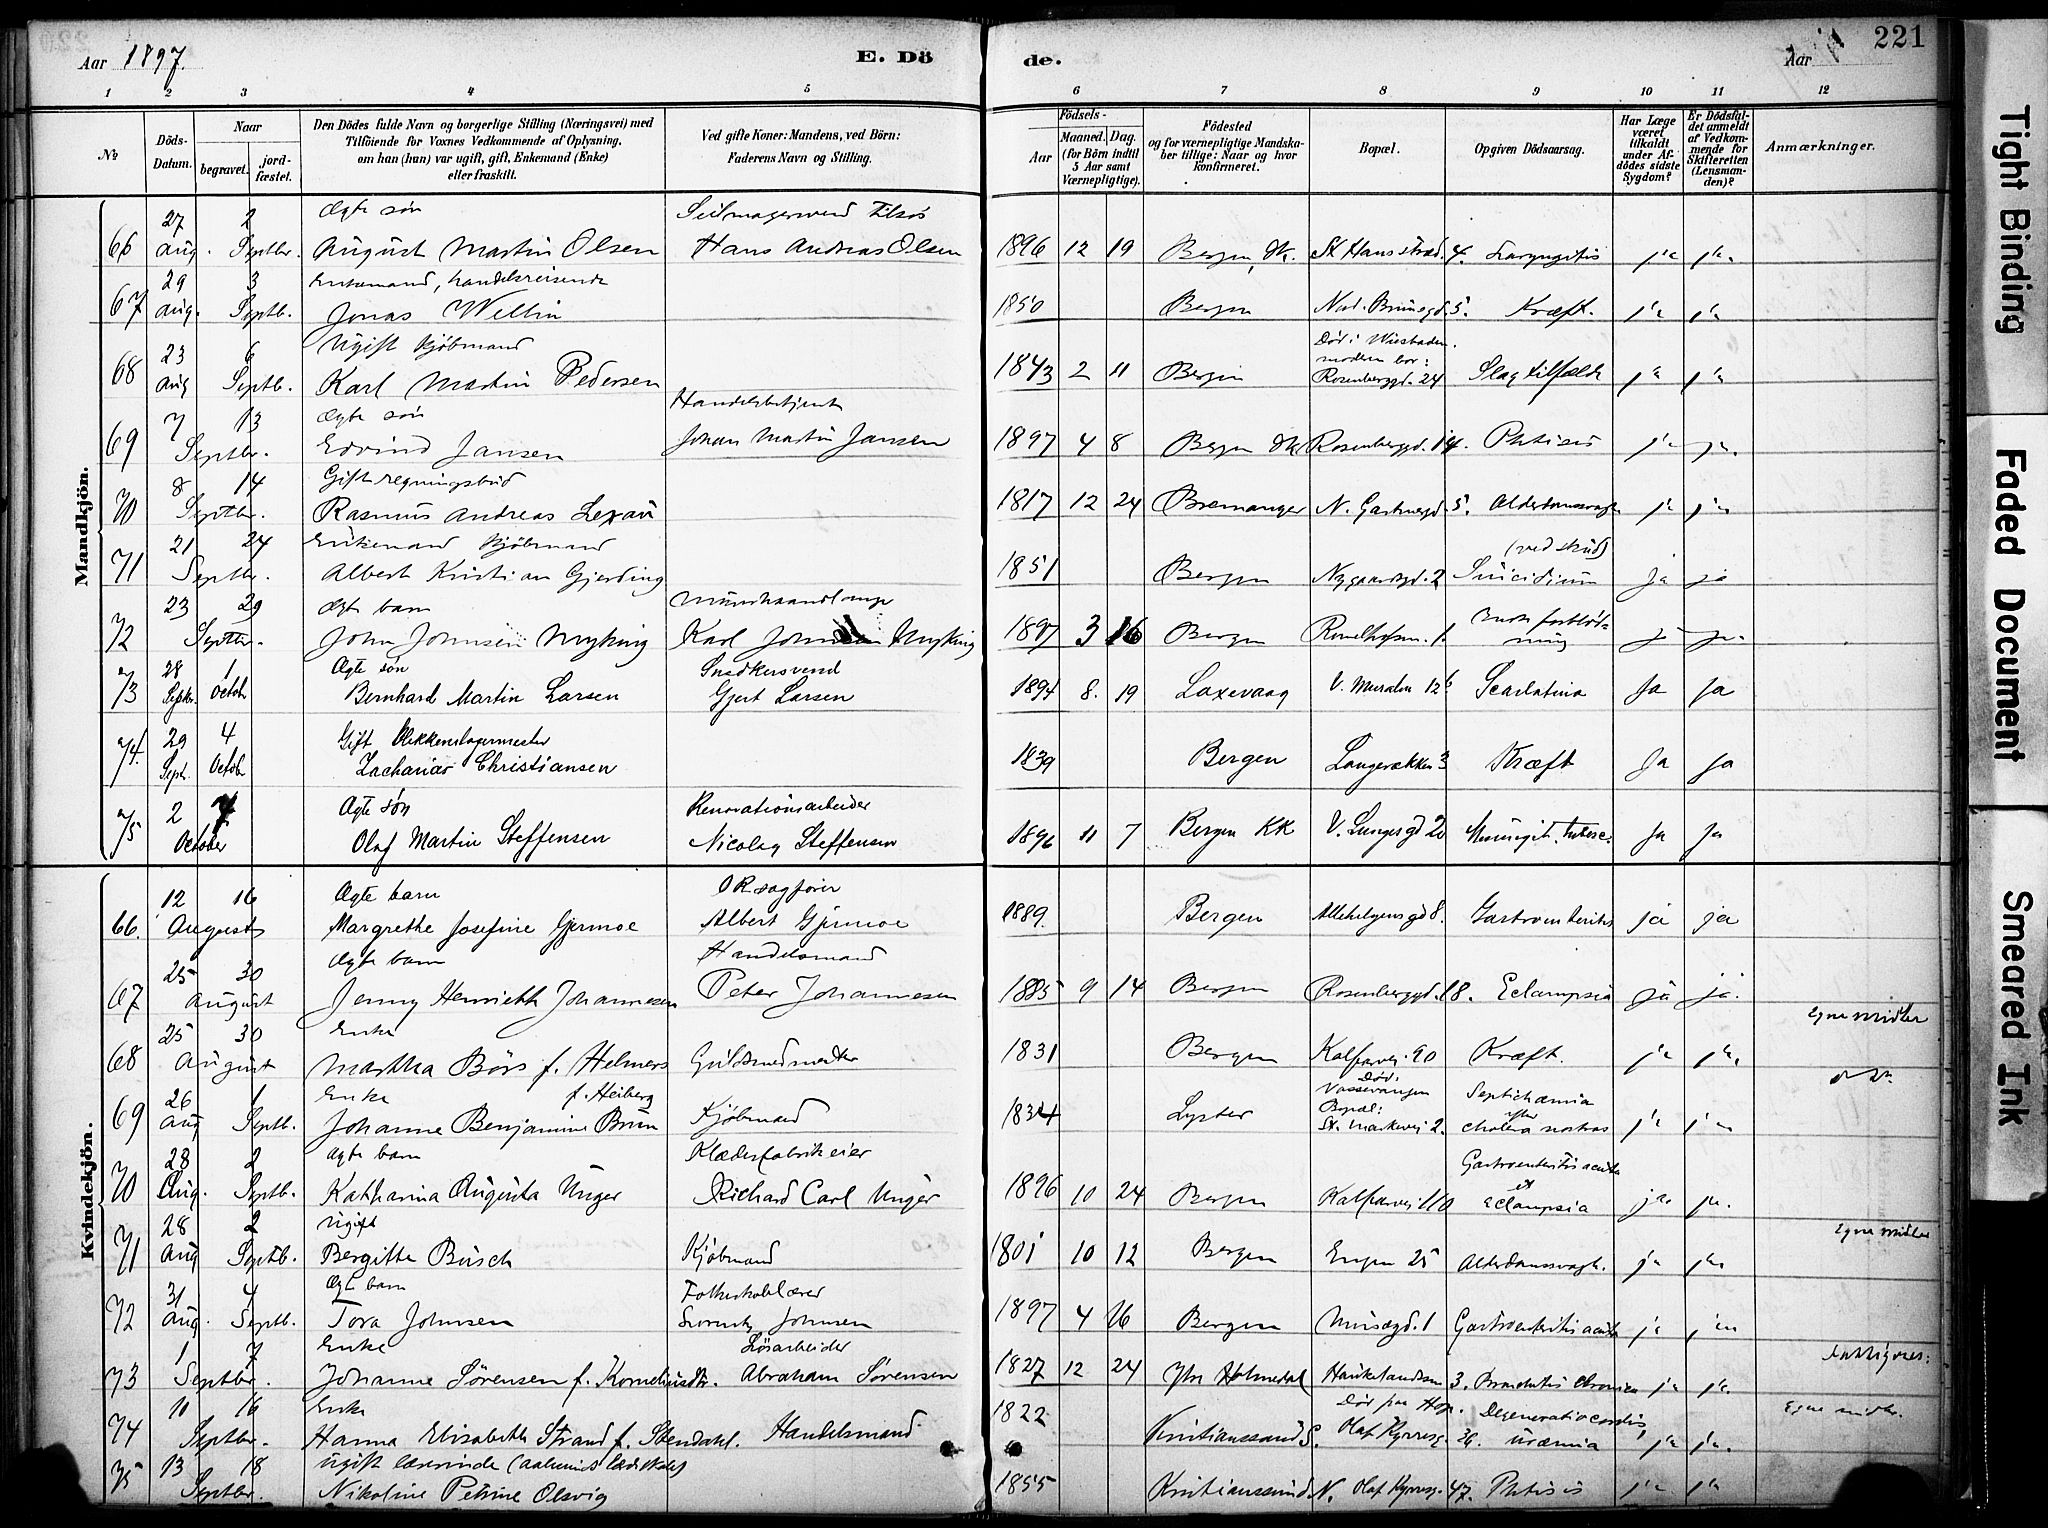 Aar 1897. E. Dö de. Aar 221
1 2 3 4 5 6 7 8 9 10 11 12
No Döds-Datum. Naar begravet. jordfæstet. Den Dödes fulde Navn og borgerlige Stilling (Næringsvei) med Tilföiende for Voxnes Vedkommende af Oplysning, om han (hun) var ugift, gift, Enkemand (Enke) eller fraskilt. Ved gifte Koner: Mandens, ved Börn: Faderens Navn og Stilling. Födsels- Aar Maaned. Dag. (for Börn indtil 5 Aar samt Værnepligtige). Födested og for værnepligtige Mandskaber tillige: Naar og hvor konfirmeret. Bopæl. Opgiven Dödsaarsag. Har Læge været tilkaldt under Afdödes sidste Sygdom? Er Dödsfaldet anmeldt af Vedkommende for Skifteretten (Lensmanden)? Anmærkninger.
Mandkjön.
27 2 Ægte søn
66 Aug. Septbr. August Martin Olsen Hans Andreas Olsen 1896 12 19 Bergen, Dk. St Hansstræd. 4. Laryngitis ja ja
29 3 Enkemand, handelsreisende
67 Aug. Septb. Jonas Wellin 1850 Bergen 5. Kræft. ja ja
23 6 Ugift kjøbmand Død i Wiesbaden. moderen bor:
68 Aug Septb. Karl Martin Pedersen 1843 2 11 Bergen Rosenberggd. 24 Slagtilfælde ja ja
7 13 Ægte søn Handelsbetjent
69 Septbr. Edvind Jansen Johan Martin Jansen 1897 4 8 Bergen Dk Rosenberggd. 14. Phtisis ja ja
8 14 Gift regningsbud
70 Septbr. Rasmus Andreas 1817 12 24 Bremanger N. Gartnergd. 5. Alderdomssvagh ja ja
21 24 Enkemand kjøbmand (ved skud)
71 Septbr. Albert Kristian Gjerding 1851 Bergen Nygaardsgd. 2 Suicidium ja ja
23 29 Ægte barn
72 Septbr. John Johnsen Myking Karl Johnsen Myking 1897 3 16 Bergen 1. ja ja
28 1 Ægte søn Snedkersvend
73 Septbr. Octob Bernhard Martin Larsen Gjert Larsen 1894 8. 19 Laxevaag V. Muralm 12b Scarlatina Ja Ja
29 4 Gift Blikkenslagermester
74. Sept. Octob Zacharias Christiansen 1839 Bergen Langerækken 3 Kræft Ja Ja
2 7 Ægte søn Renovationsarbeider
75 October Olaf Martin Steffensen Nicolay Steffensen 1896 11 7 Bergen KK V. Lungesgd 20 Meningit. tuberc. Ja Ja
Kvindekjön.
12 16 Ægte barn ORsagfører
66. August Margrethe Josefine Gjermoe Albert Gjermoe 1889. Bergen Allehelgensgd 8. Gastroenteritis ja ja
25 30 Ægte barn Handelsmand
67 August Jenny Henriette Johannesen Peter Johannesen 1885 9 14 Bergen Rosenberggd. 18. Eclampsia ja ja.
25 30 Enke Egne midler
68 August Martha Börs f. Helmers Guldsmedmester 1831 Bergen Kalfarvei. 90 Kræft. ja ja
26 1 Enke f. Heiberg Død: Vossevangen Septichæmia
69 Aug Septb. Johanne Benjamine Brun Kjöbmand 1834 Lyster Bopæl: St. Markevei 2. efter cholera nostras ja ja
28 2 Ægte barn Klædesfabrikeier Gastroenteritis acuta
70 Aug. Septb. Katharina Augusta Unger Richard Carl Unger 1896 10 24 Bergen Kalfarvei 110 et Eclampsia ja ja
28 2 Ugift Egne midler
71 Aug Septb. Bergitte Busch Kjöbmand 1801 10 12 Bergen Engen 25 Alderdomssvagh. ja ja
31 4 Ægte barn Folkeskolelærer
72 Aug. Septb. Tora Johnsen Johnsen 1897 4 16 Bergen Museegd. 1 Gastroenteritis acuta ja ja
1 7 Enke Løsarbeider
73 Septbr. Johanne Sørensen f. Korneliusdtr. Abraham Sørensen 1827 12 24 Ytre Holmedal Haukelandsvn 3. Bronchitis chronica ja ja
10 16 Enke Død paa Hosp. Degeneratio cordis, Egne midler.
74 Septbr. Hanna Elisabeth Strand f. Stendahl. Handelsmand 1822 Kristianssand S. Olaf Kyrresg. 39. Uræmia ja ja
13 18 Ugift lærerinde
75 Septbr. Nikoline Petrine Olsvig 1855 Kristianssund N. Olaf Kyrresg. 47. Phtisis ja ja
Tight Binding
Faded Document
Smeared Ink